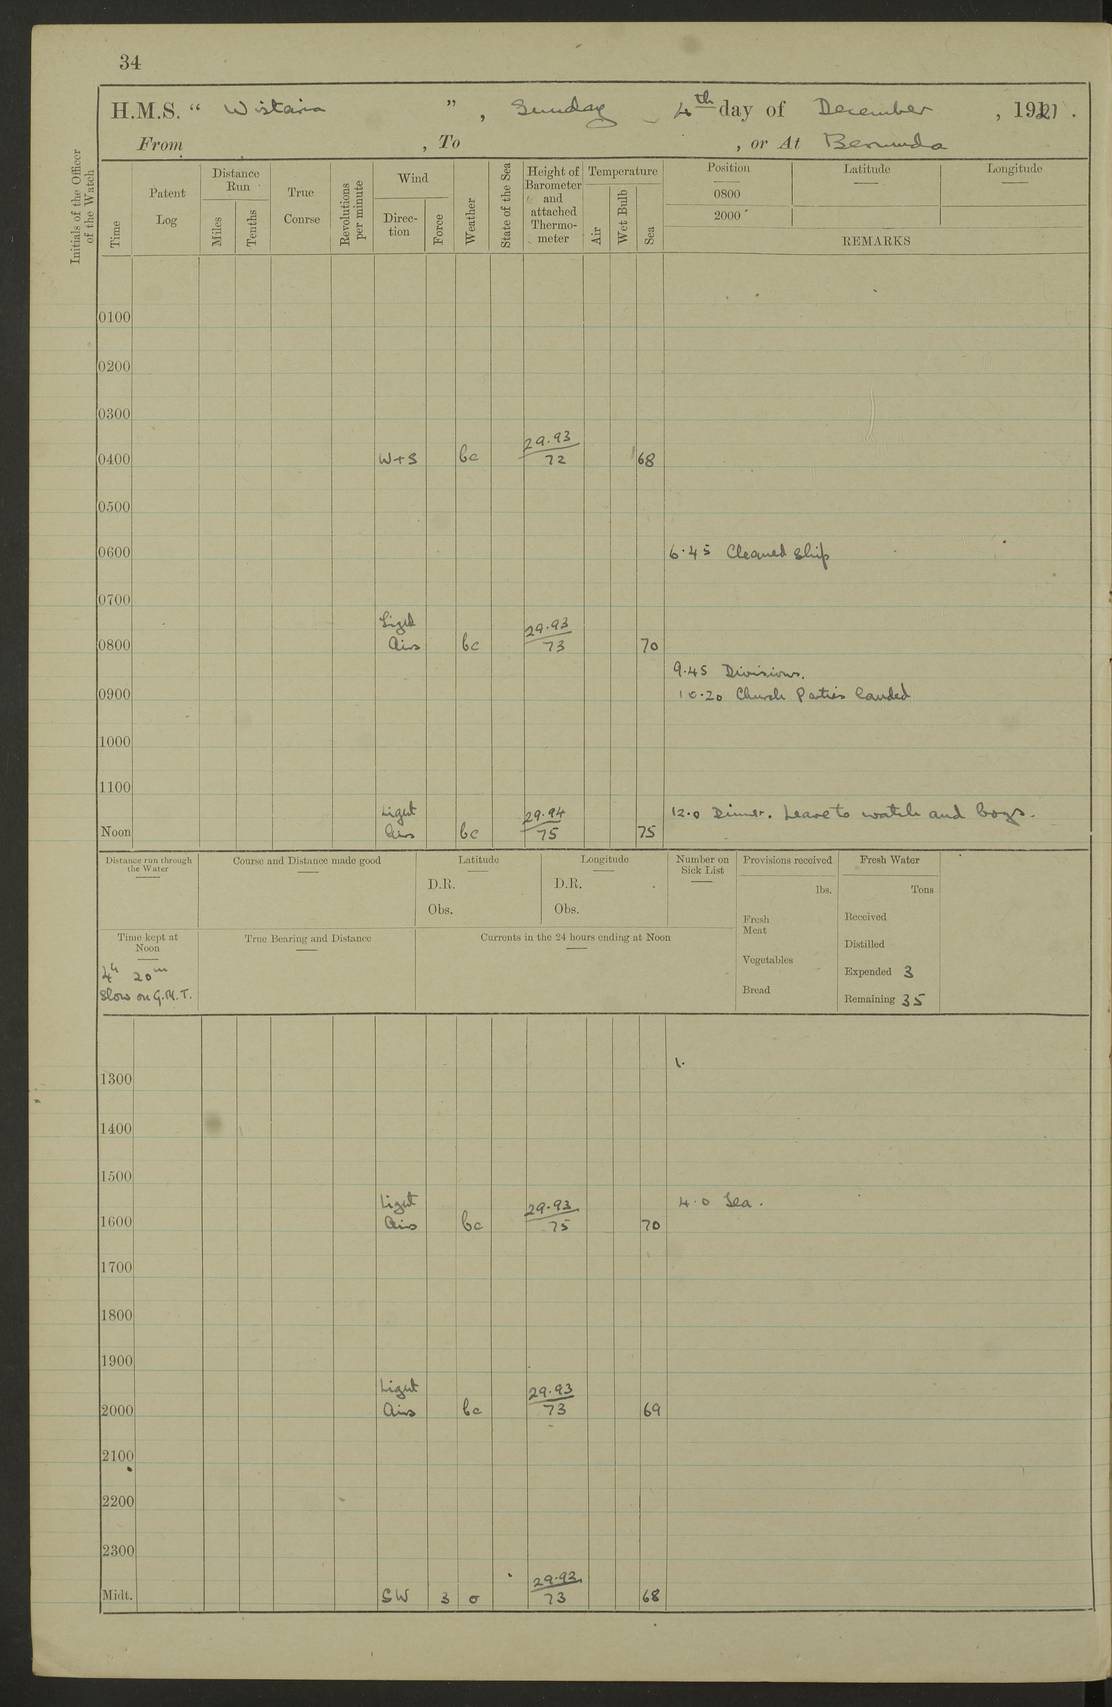 34
H.M.S. “ Wistaria ” , Sunday 4th day of December , 1921 .
From , To , or At Bermuda
Initials of the Officer of the Watch
Time
Patent Log
Distance Run
Miles
Tenths
True Course
Revolutions per minute
Wind
Direc-tion
Force
Weather
State of the Sea
Height of Barometer and attached Thermo-meter
Temperature
Air
Wet Bulb
Sea
Position Latitude Longitude
0800
2000
REMARKS
0100
0200
0300
29.93
0400 W+S bc 72 68
0500
0600 6.45 Cleaned ship
0700
Light 29.93
0800 Airs bc 73 70
9.45 Divisions.
0900 10.20 Church Parties landed
1000
1100
Light 29.94 12.0 Dinner. Leave to watch and boys.
Noon Airs bc 75 75
Distance run through the Water
Course and Distance made good
Latitude
D.R.
Obs.
Longitude
D.R.
Obs.
Number on Sick List
Provisions received
lbs.
Fresh Meat
Vegetables
Bread
Fresh Water
Tons
Received
Distilled
Expended 3
Remaining 35
Time kept at Noon
4h 20m
Slow on G.M.T.
True Bearing and Distance
Currents in the 24 hours ending at Noon
1.
1300
1400
1500
Light 29.93 4.0 Tea.
1600 Airs bc 75 70
1700
1800
1900
Light 29.93
2000 Airs bc 73 69
2100
2200
2300
29.92
Midt. SW 3 o 73 68